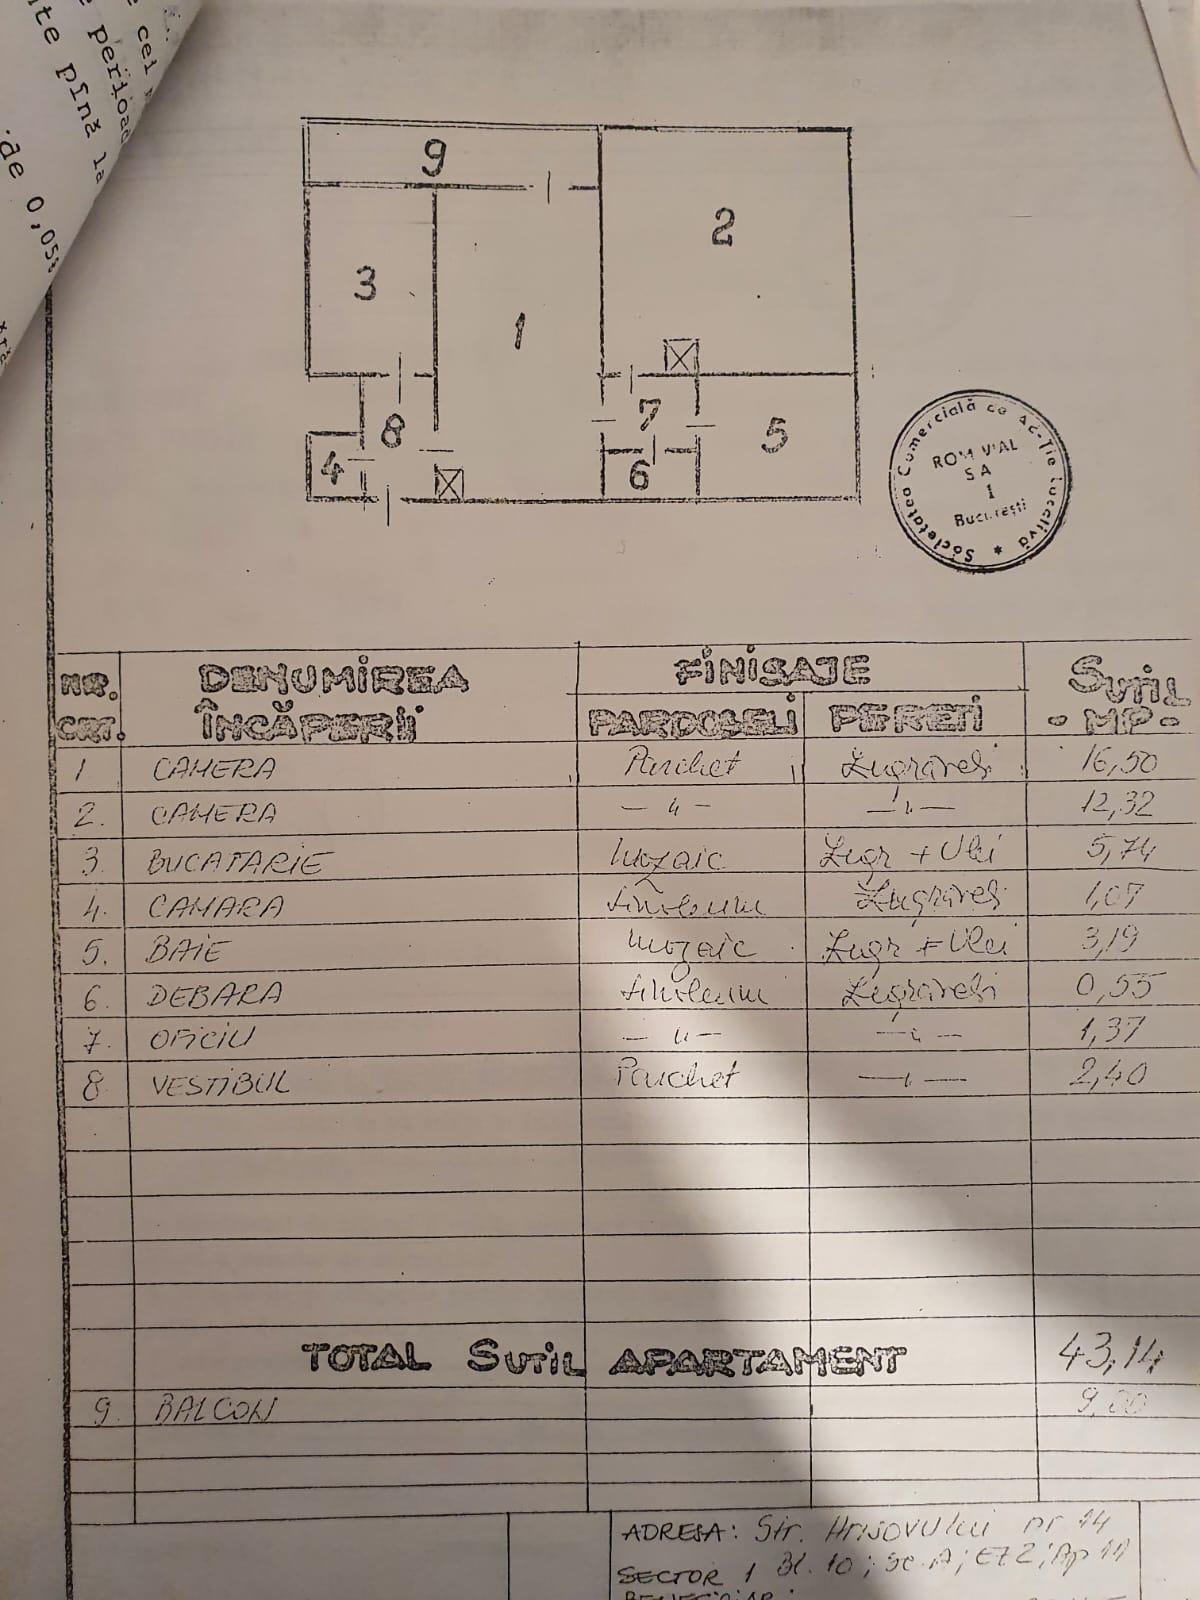 te pînă la
perioad
cei
de 0,05
9
2
3
1
7
8
5
4
6
Societatea Comercială de Ac-ție Locativă *
ROM VIAL
SA
1
București
NR. CRT.
DENUMIREA ÎNCĂPERII
FINISAJE
PARDOSELI
PERETI
SUTIL - MP -
1 CAMERA Parchet Zugraveli 16,50
2. CAMERA — 〃 — — 〃 — 12,32
3. BUCATARIE Mozaic Zugr + Ulei 5,74
4. CAMARA Linoleum Zugraveli 1,07
5. BAIE Mozaic Zugr + Ulei 3,19
6. DEBARA Linoleum Zugraveli 0,55
7. OFICIU — 〃 — — 〃 — 1,37
8 VESTIBUL Parchet — 〃 — 2,40
TOTAL SUTIL APARTAMENT 43,14
9. BALCON 9,00
ADRESA: Str. Hrisovului nr 14
SECTOR 1 Bl. 10; Sc. A; ET 2; Ap 11